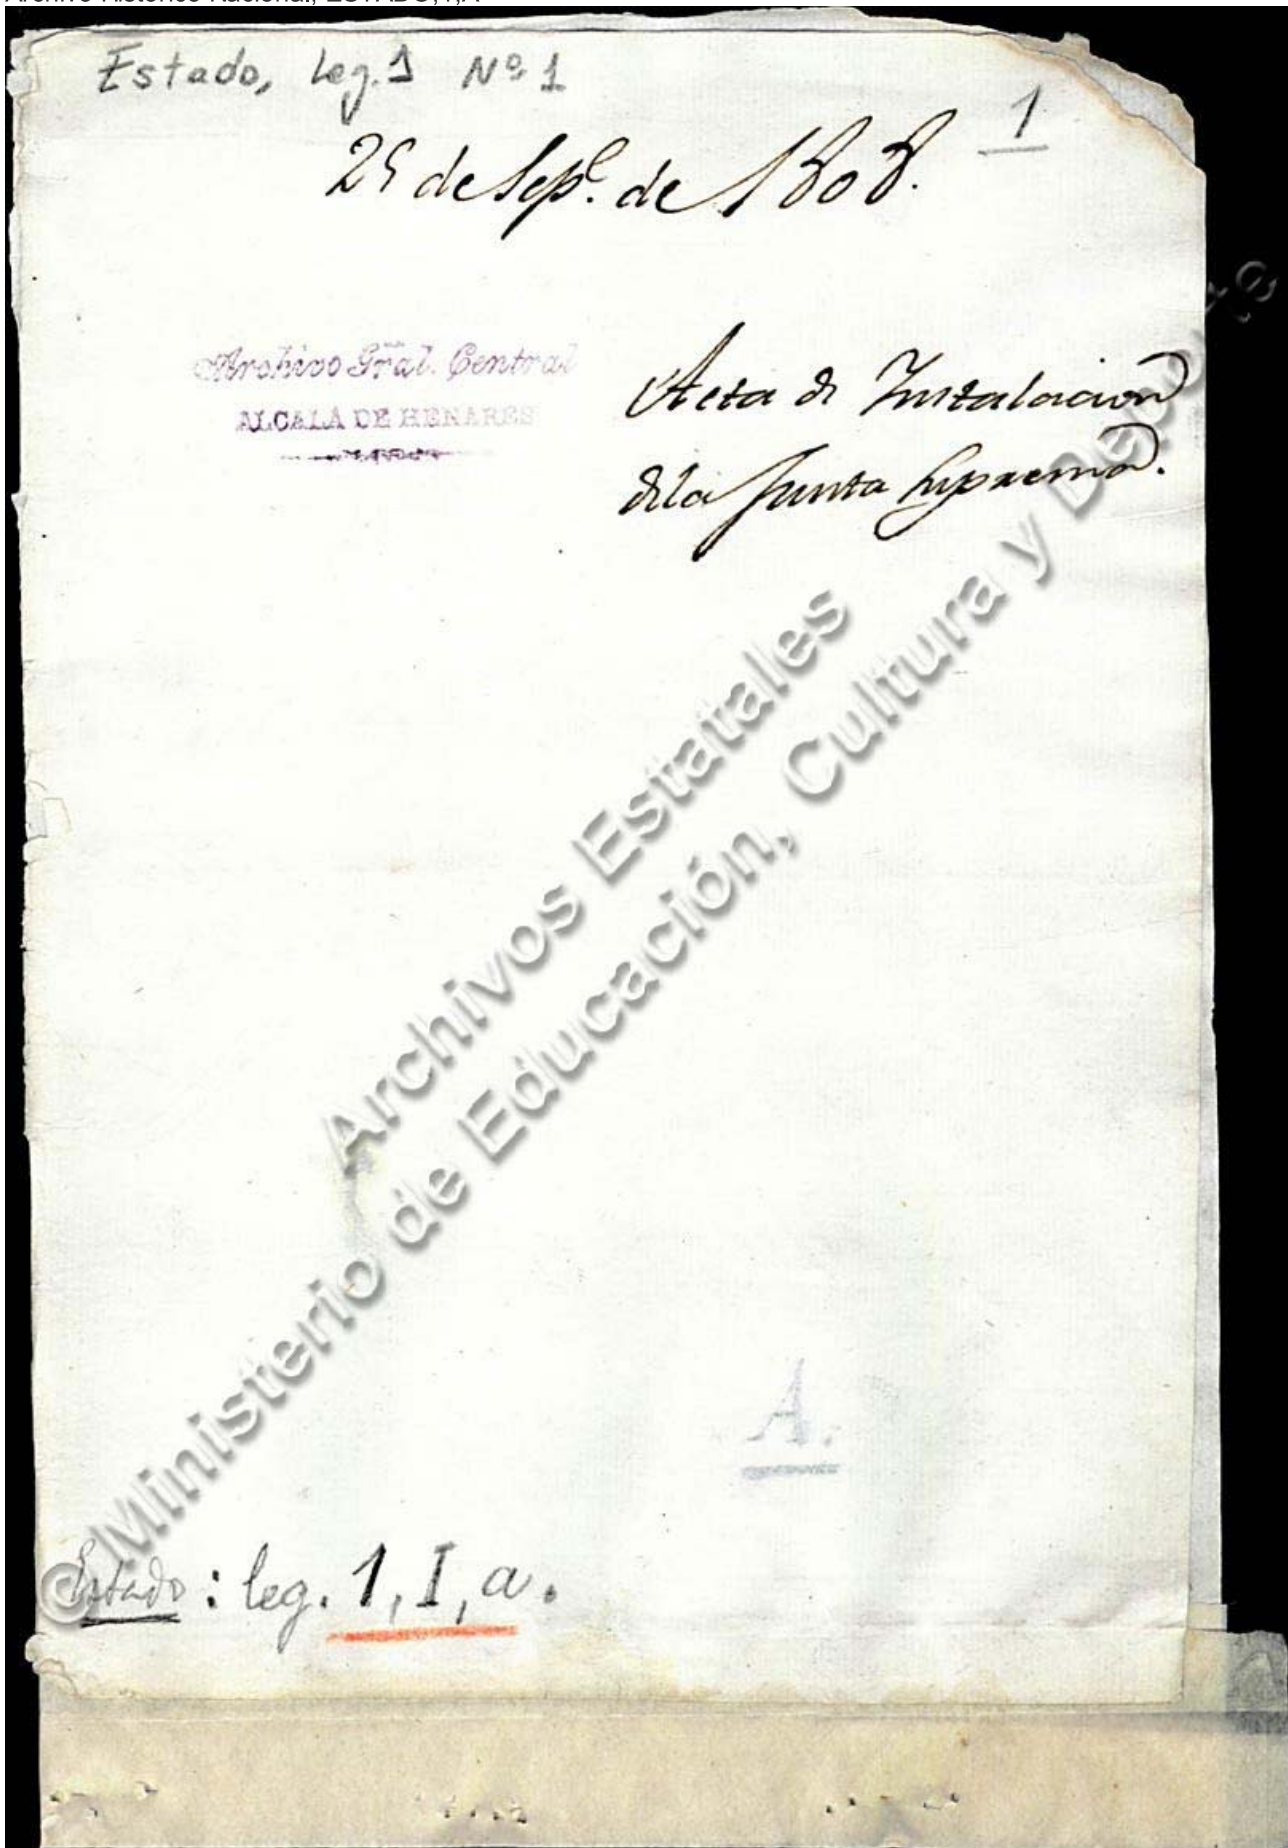 Archivo Histórico Nacional, ESTADO,1,A
Estado, leg. 1 Nº 1
1
25 de Sepe. de 1808.
Archivo Gral. Central
ALCALA DE HENARES
Acta de Instalacion
dela Junta Suprema.
© Ministerio de Educación, Cultura y Deporte
Archivos Estatales
A.
Estado: leg. 1, I, a.